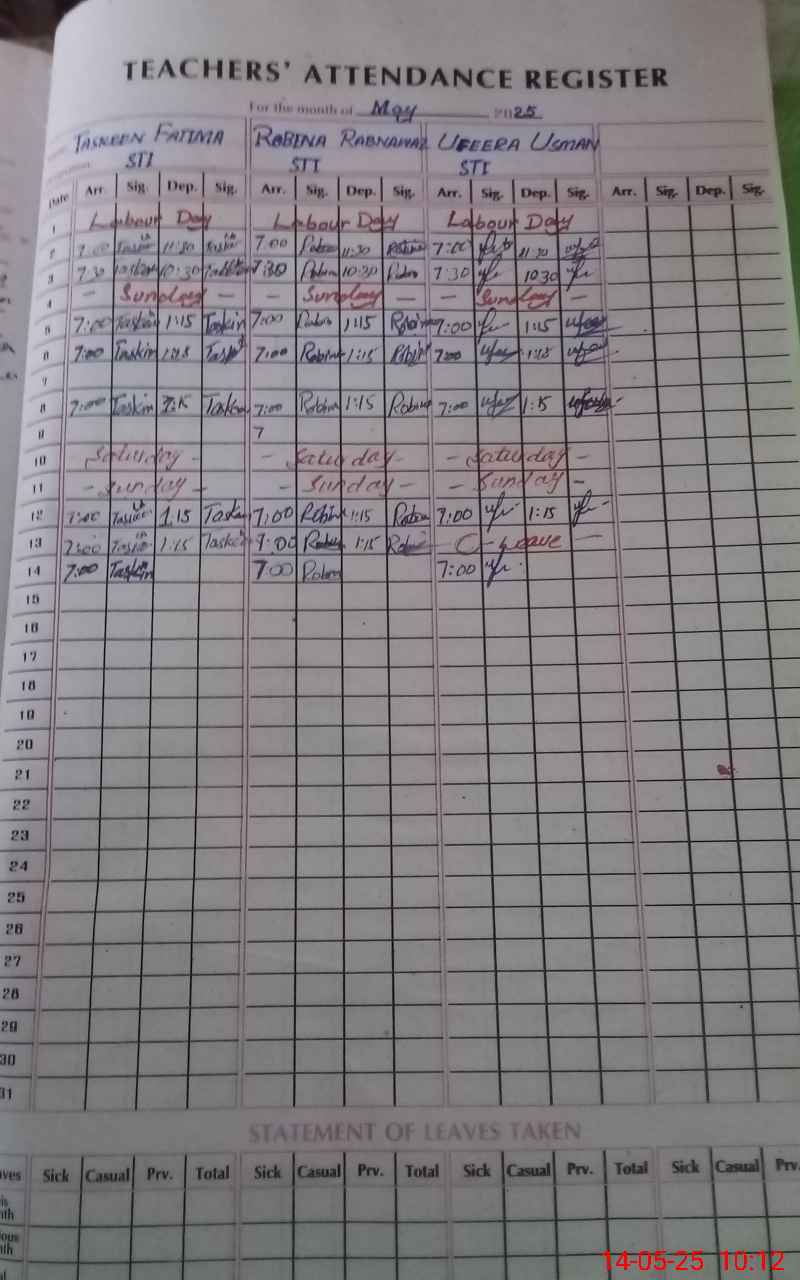 TEACHERS' ATTENDANCE REGISTER
For the month of May 2025
TASKEEN FATIMA ROBINA RABNAWAZ UFEERA USMAN
STI STI STI
Date Arr. Sig. Dep. Sig. Arr. Sig. Dep. Sig. Arr. Sig. Dep. Sig. Arr. Sig. Dep. Sig.
1 Labour Day Labour Day Labour Day
2 7:00 11:30 7:00 11:30 7:00 11:30
3 7:30 10:30 7:30 10:30 7:30 10:30
4 - Sunday - - Sunday - - Sunday -
5 7:00 Taskin 1:15 Taskin 7:00 1:15 7:00 1:15
6 7:00 Taskin 1:15 7:00 Robina 1:15 7:00 1:15
7
8 7:00 Taskin Taskin 7:00 Robina 1:15 Robina 7:00 1:15
9 7
10 Saturday - - Saturday - - Saturday -
11 - Sunday - - Sunday - - Sunday -
12 7:00 1:15 7:00 Robina 1:15 7:00 1:15
13 7:00 1:15 Taskin 7:00 1:15 - C-Leave -
14 7:00 Taskin 7:00 7:00
15
16
17
18
19
20
21
22
23
24
25
26
27
28
29
30
31
STATEMENT OF LEAVES TAKEN
ves Sick Casual Prv. Total Sick Casual Prv. Total Sick Casual Prv. Total Sick Casual Prv.
is
nth
ious
nth
14-05-25 10:12